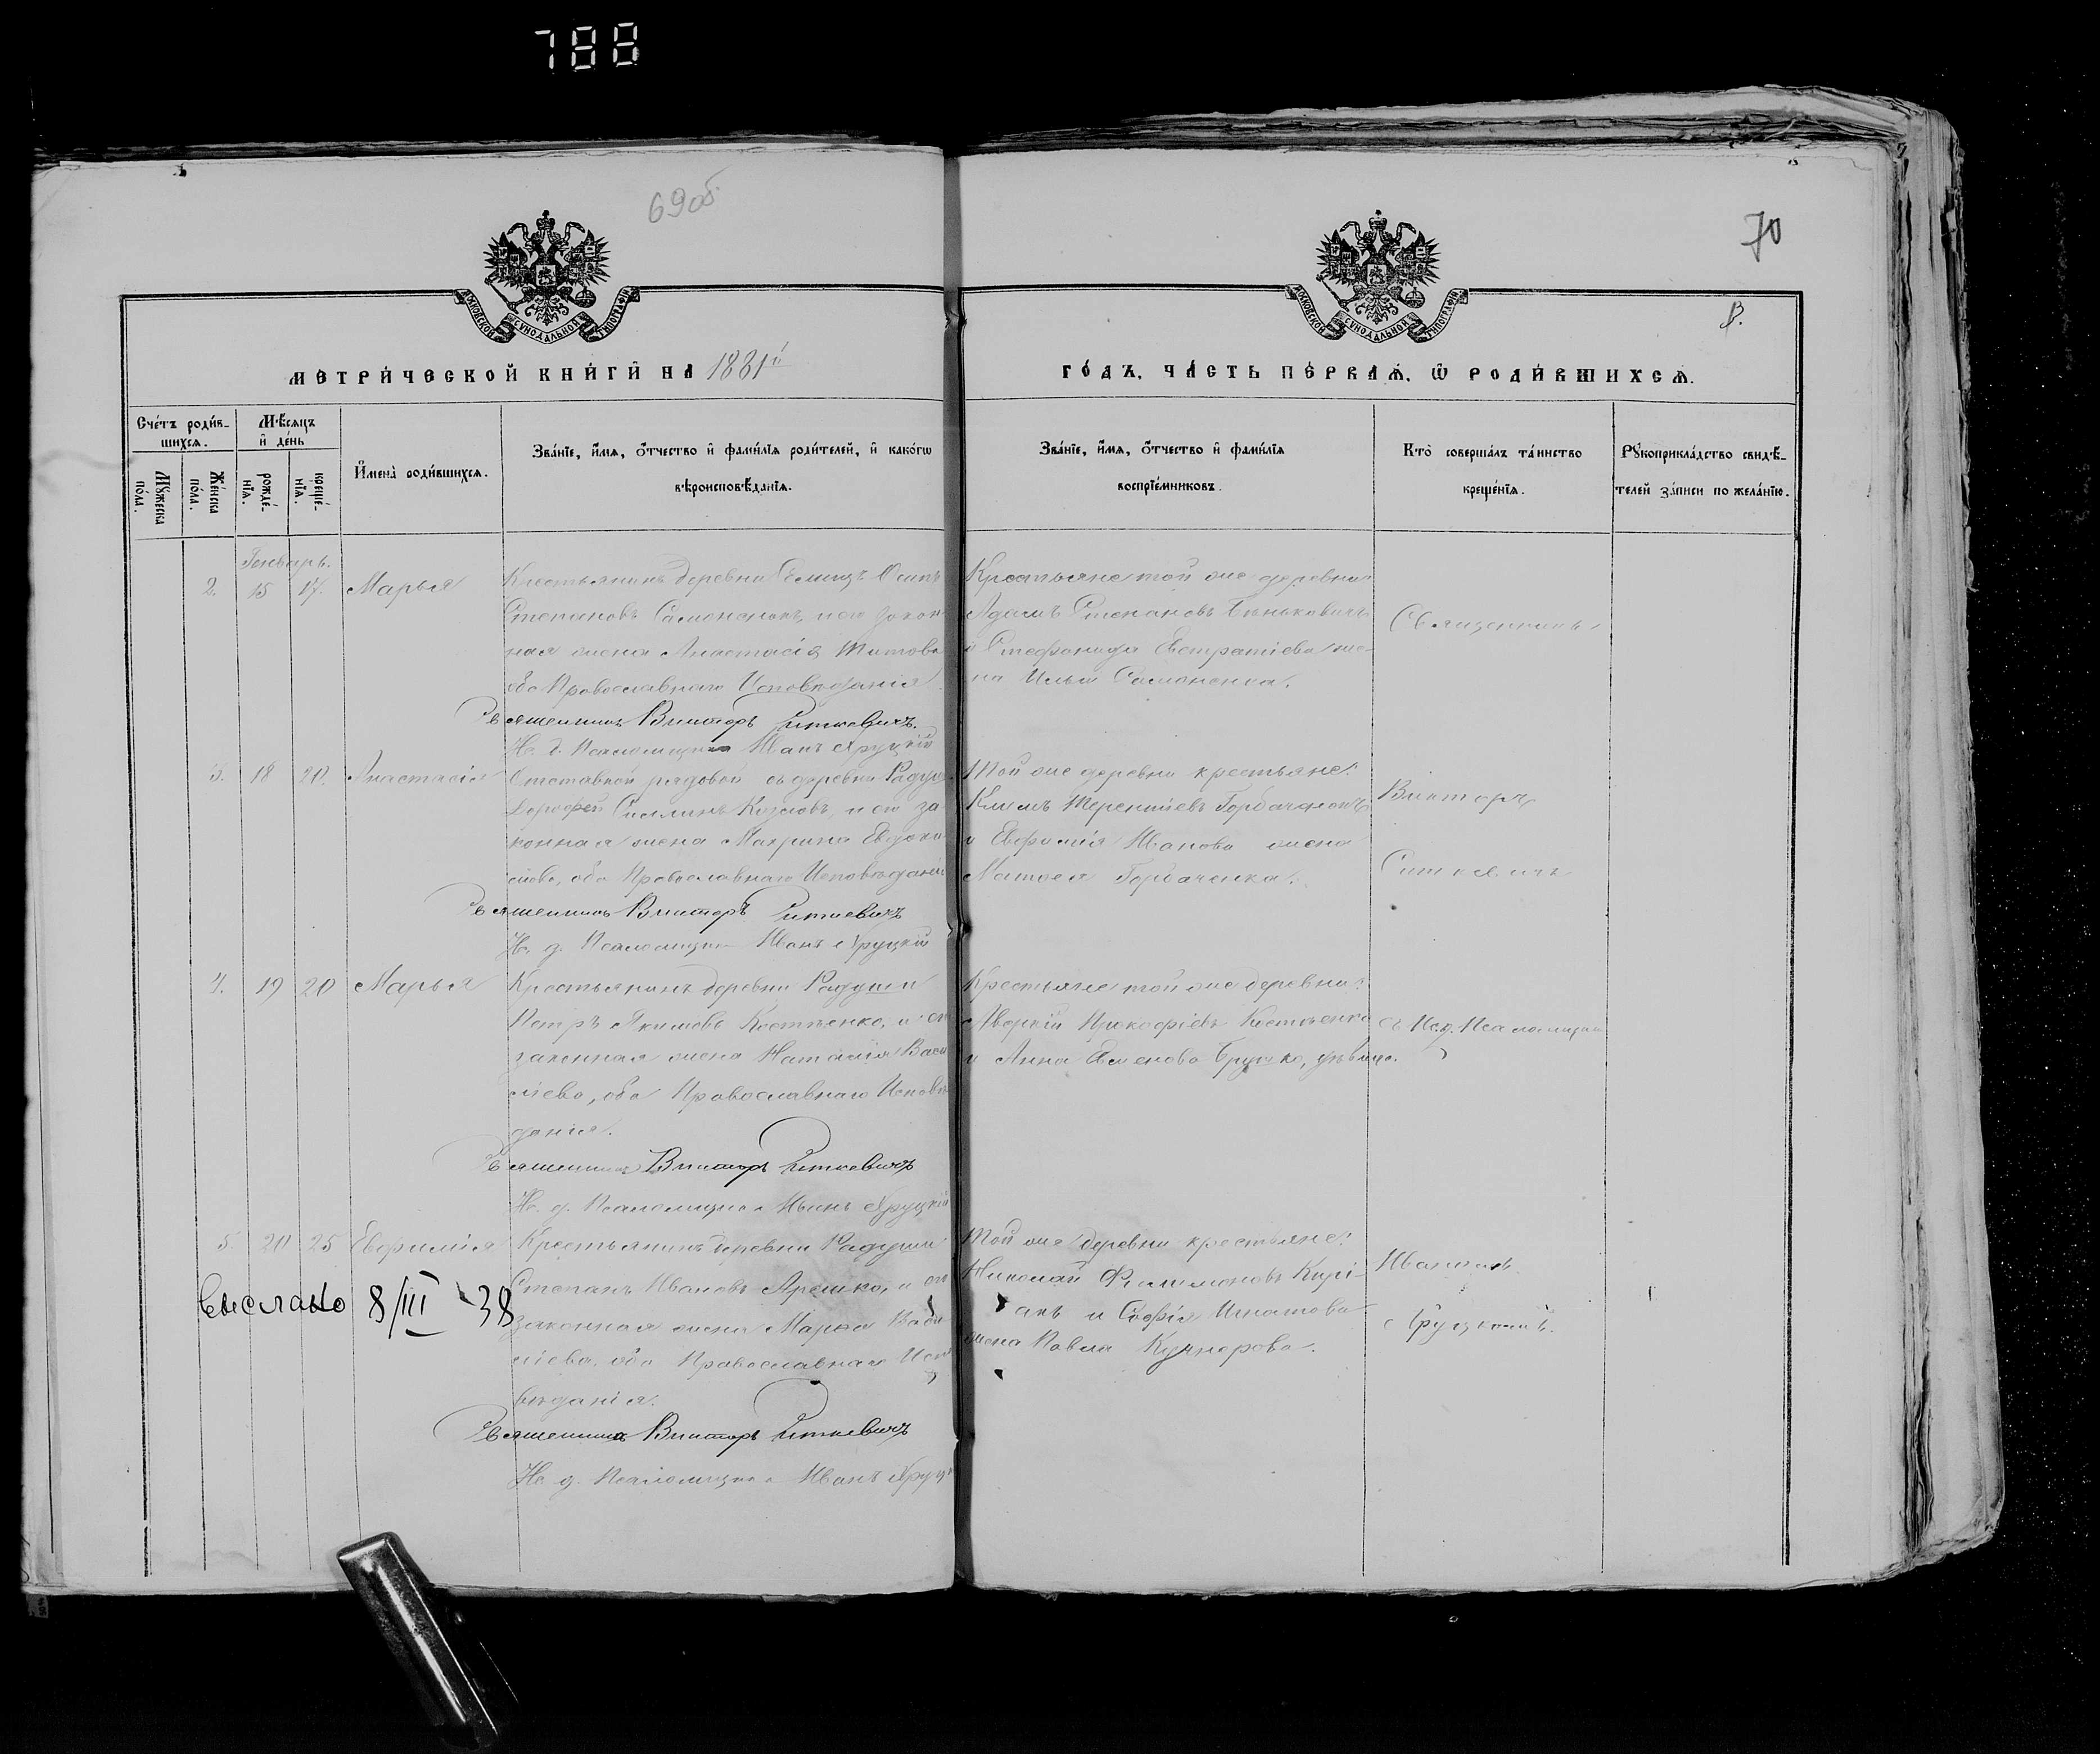 788
69об
70
МОСКОВСКОЙ СѴНОДАЛЬНОЙ ТИПОГРАФІИ
МОСКОВСКОЙ СѴНОДАЛЬНОЙ ТИПОГРАФІИ
В.
МЕТРИ́ЧЕСКОЙ КНИ́ГИ НА 1881й
ГО́ДЪ, ЧА́СТЬ ПЕ́РВАѦ, Ѿ РОДИ́ВШИХСѦ.
Сче́тъ роди́в-
шихсѧ.
Мѣ́сѧцъ
и де́нь
Мꙋ́жеска
по́ла.
Же́нска
по́ла.
рожде́-
нїѧ.
креще́-
нїѧ.
Имена̀ роди́вшихсѧ.
Зва́нїе, и́мѧ, ѻ́тчество и фами́лїѧ роди́телей, и како́гѡ
вѣроисповѣ́данїѧ.
Зва́нїе, и́мѧ, ѻ́тчество и фами́лїѧ
воспрїе́мниковъ.
Кто̀ соверша́лъ та́инство
креще́нїѧ.
Рꙋкоприкла́дство свидѣ́-
телей за́писи по жела́нїю.
Генварь.
2. 15 17. Марья
Крестьянинъ деревни Осипъ
Степановъ Самоненокъ, и его закон
ная жена Анастасія Титова
оба Православнаго Исповѣданія
Священникъ Викторъ Ситкевичъ.
И. д. Псаломщика Иванъ Хруцкій
Крестьяне той же деревни
Адамъ Степановъ Беньковичъ
и Стефанида Евстратіева же-
на Ильи Самоненка.
Священникъ
3. 18 20. Анастасія
Отставной рядовой съ деревни Радуш
Дорофей Силинъ Козловъ, и его за
конная жена Маврина Евдоки
мова, оба Православнаго Исповѣданія
Священникъ Викторъ Ситкевичъ
И. д. Псаломщика Иванъ Хруцкій
Той же деревни крестьяне:
Климъ Терентіевъ Горбаченокъ
и Евфимія Иванова жена
Матвея Горбаченка.
Викторъ
Ситкевичъ
4. 19 20 Марья
Крестьянинъ деревни Радуши
Петръ Якимовъ Костенко, и его
законная жена Наталія Васи
лiева, оба Православнаго Исповѣ
данія.
Священникъ Викторъ Ситкевичъ
И. д. Псаломщика Иванъ Хруцкій
Крестьяне той же деревни:
Аверкій Прокофіевъ Костенко
и Анна Семенова Брушко, дѣвица.
съ И. д. Псаломщика
5. 20 25 Евфимія
Крестьянинъ деревни Радуши
Степанъ Ивановъ Ярошко, и его
законная жена Марѳа Васи
лiева, оба Православнаго Испо
вѣданія.
Священникъ Викторъ Ситкевичъ
И. д. Псаломщика Иванъ Хруцк
Той же деревни крестьяне:
Николай Филимоновъ Кирі-
акъ и Софія Игнатова
жена Павла Кушнерова.
Иваномъ
Хруцкимъ.
Выслано 8/III-38